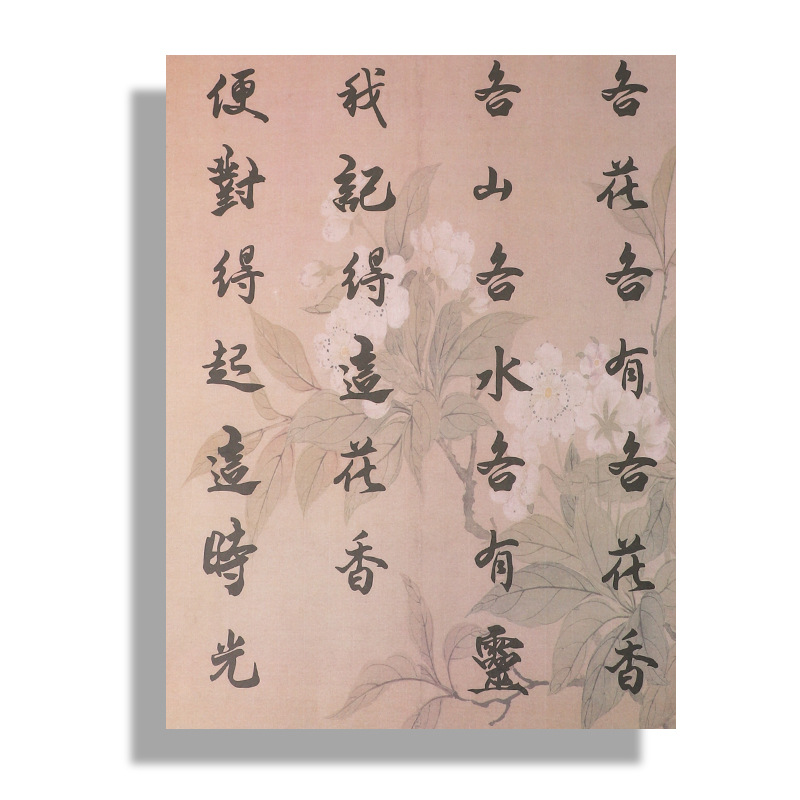 各花各有各花香
各山各水各有靈
我記得這花香
便對得起這時光